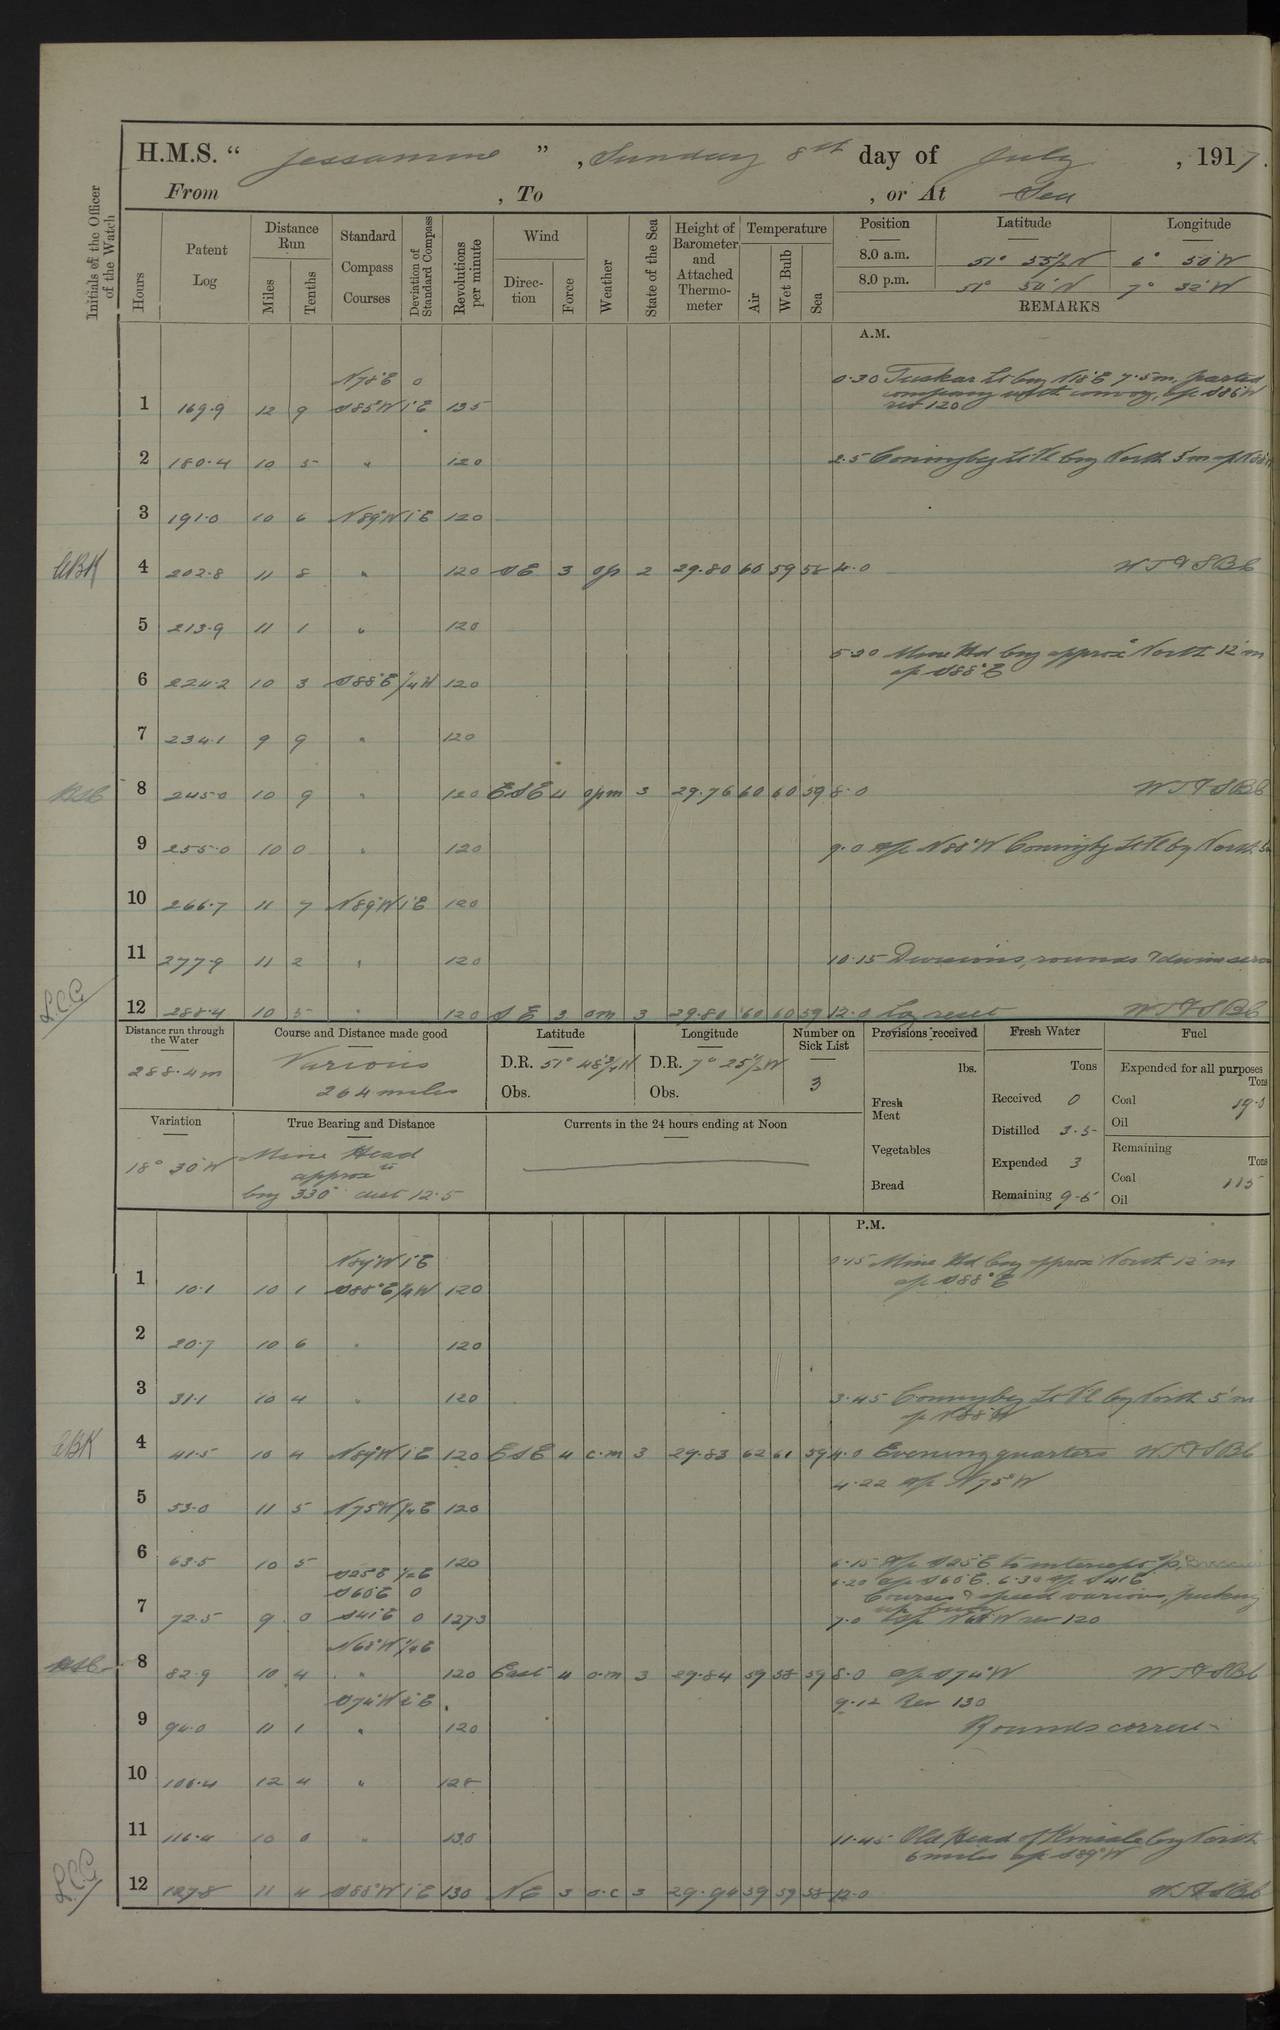 H.M.S. “ Jessamine ” , Sunday 8th day of July , 1917.
From , To , or At Sea
Initials of the Officer of the Watch
Hours
Patent Log
Distance Run
Miles
Tenths
Standard Compass Courses
Deviation of Standard Compass
Revolutions per minute
Wind
Direction
Force
Weather
State of the Sea
Height of Barometer and Attached Thermometer
Temperature
Air
Wet Bulb
Sea
Position Latitude Longitude
8.0 a.m. 51° 55½ N 6° 50 W
8.0 p.m. 51° 50 N 7° 32 W
REMARKS
A.M.
N78°E 0
0.30 Tuskar Lt brg N18°E 7.5m, parted
company with convoy, a/c S86°W
rev 120
1 169.9 12 9 S85°W 1°E 135
2 180.4 10 5 " 120 2.5 Coningbeg Lt Vl brg North 5m
3 191.0 10 6 N89°W 1°E 120
4 202.8 11 8 " 120 SE 3 op 2 29.80 60 59 58 4.0
5 213.9 11 1 " 120
5.30 Mine Hd brg approx North 12 m
a/c S88°E
6 224.2 10 3 S88°E ¼W 120
7 234.1 9 9 " 120
8 245.0 10 9 " 120 ESE 4 opm 3 29.76 60 60 59 8.0
9 255.0 10 0 " 120 9.0 a/c N88°W Coningbeg Lt Vl by North 5m
10 266.7 11 7 N89°W 1°E 120
11 277.9 11 2 " 120 10.15 Divisions, rounds & divine
12 288.4 10 5 " 120 SE 3 om 3 29.80 60 60 59 12.0 Log reset
Distance run through the Water
288.4 m
Course and Distance made good
Various
264 miles
Latitude
D.R. 51° 48¾ N
Obs.
Longitude
D.R. 7° 25½ W
Obs.
Number on Sick List
3
Provisions received
lbs.
Fresh Meat
Vegetables
Bread
Fresh Water
Tons
Received 0
Distilled 3.5
Expended 3
Remaining 9.5
Fuel
Expended for all purposes
Tons
Coal 19.5
Oil
Remaining
Tons
Coal 115
Oil
Variation
18° 30 W
True Bearing and Distance
Mine Head
approx
brg 330° dist 12.5
Currents in the 24 hours ending at Noon
P.M.
N89°W 1°E
0.15 Mine Hd brg approx North 12 m
a/c S88°E
1 10.1 10 1 S88°E ¼W 120
2 20.7 10 6 " 120
3 31.1 10 4 " 120 3.45 Coningbeg Lt Vl by North 5 m
a/c N88°W
4 41.5 10 4 N89°W 1°E 120 ESE 4 c.m 3 29.83 62 61 59 4.0 Evening quarters
4.22 a/c N75°W
5 53.0 11 5 N75°W ¼E 120
6 63.5 10 5 120 6.15 a/c S25°E to intercept
S25E ½E
6.20 a/c S60°E. 6.30 a/c S41E
S60E 0
Courses & speed various, picking
up
7 72.5 9 0 S41E 0 127.3 7.0 a/c N68°W rev 120
N68°W ¼E
8 82.9 10 4 " 120 East 4 o.m 3 29.84 59 58 59 8.0 a/c S74°W
S74°W 1°E
9.12 Rev 130
9 94.0 11 1 " 120 Rounds correct
10 106.4 12 4 " 128
11 116.4 10 0 " 130 11.45 Old Head of Kinsale brg North
6 miles a/c S89°W
12 127.8 11 4 S88°W 1°E 130 NE 3 o.c 3 29.94 59 59 58 12.0